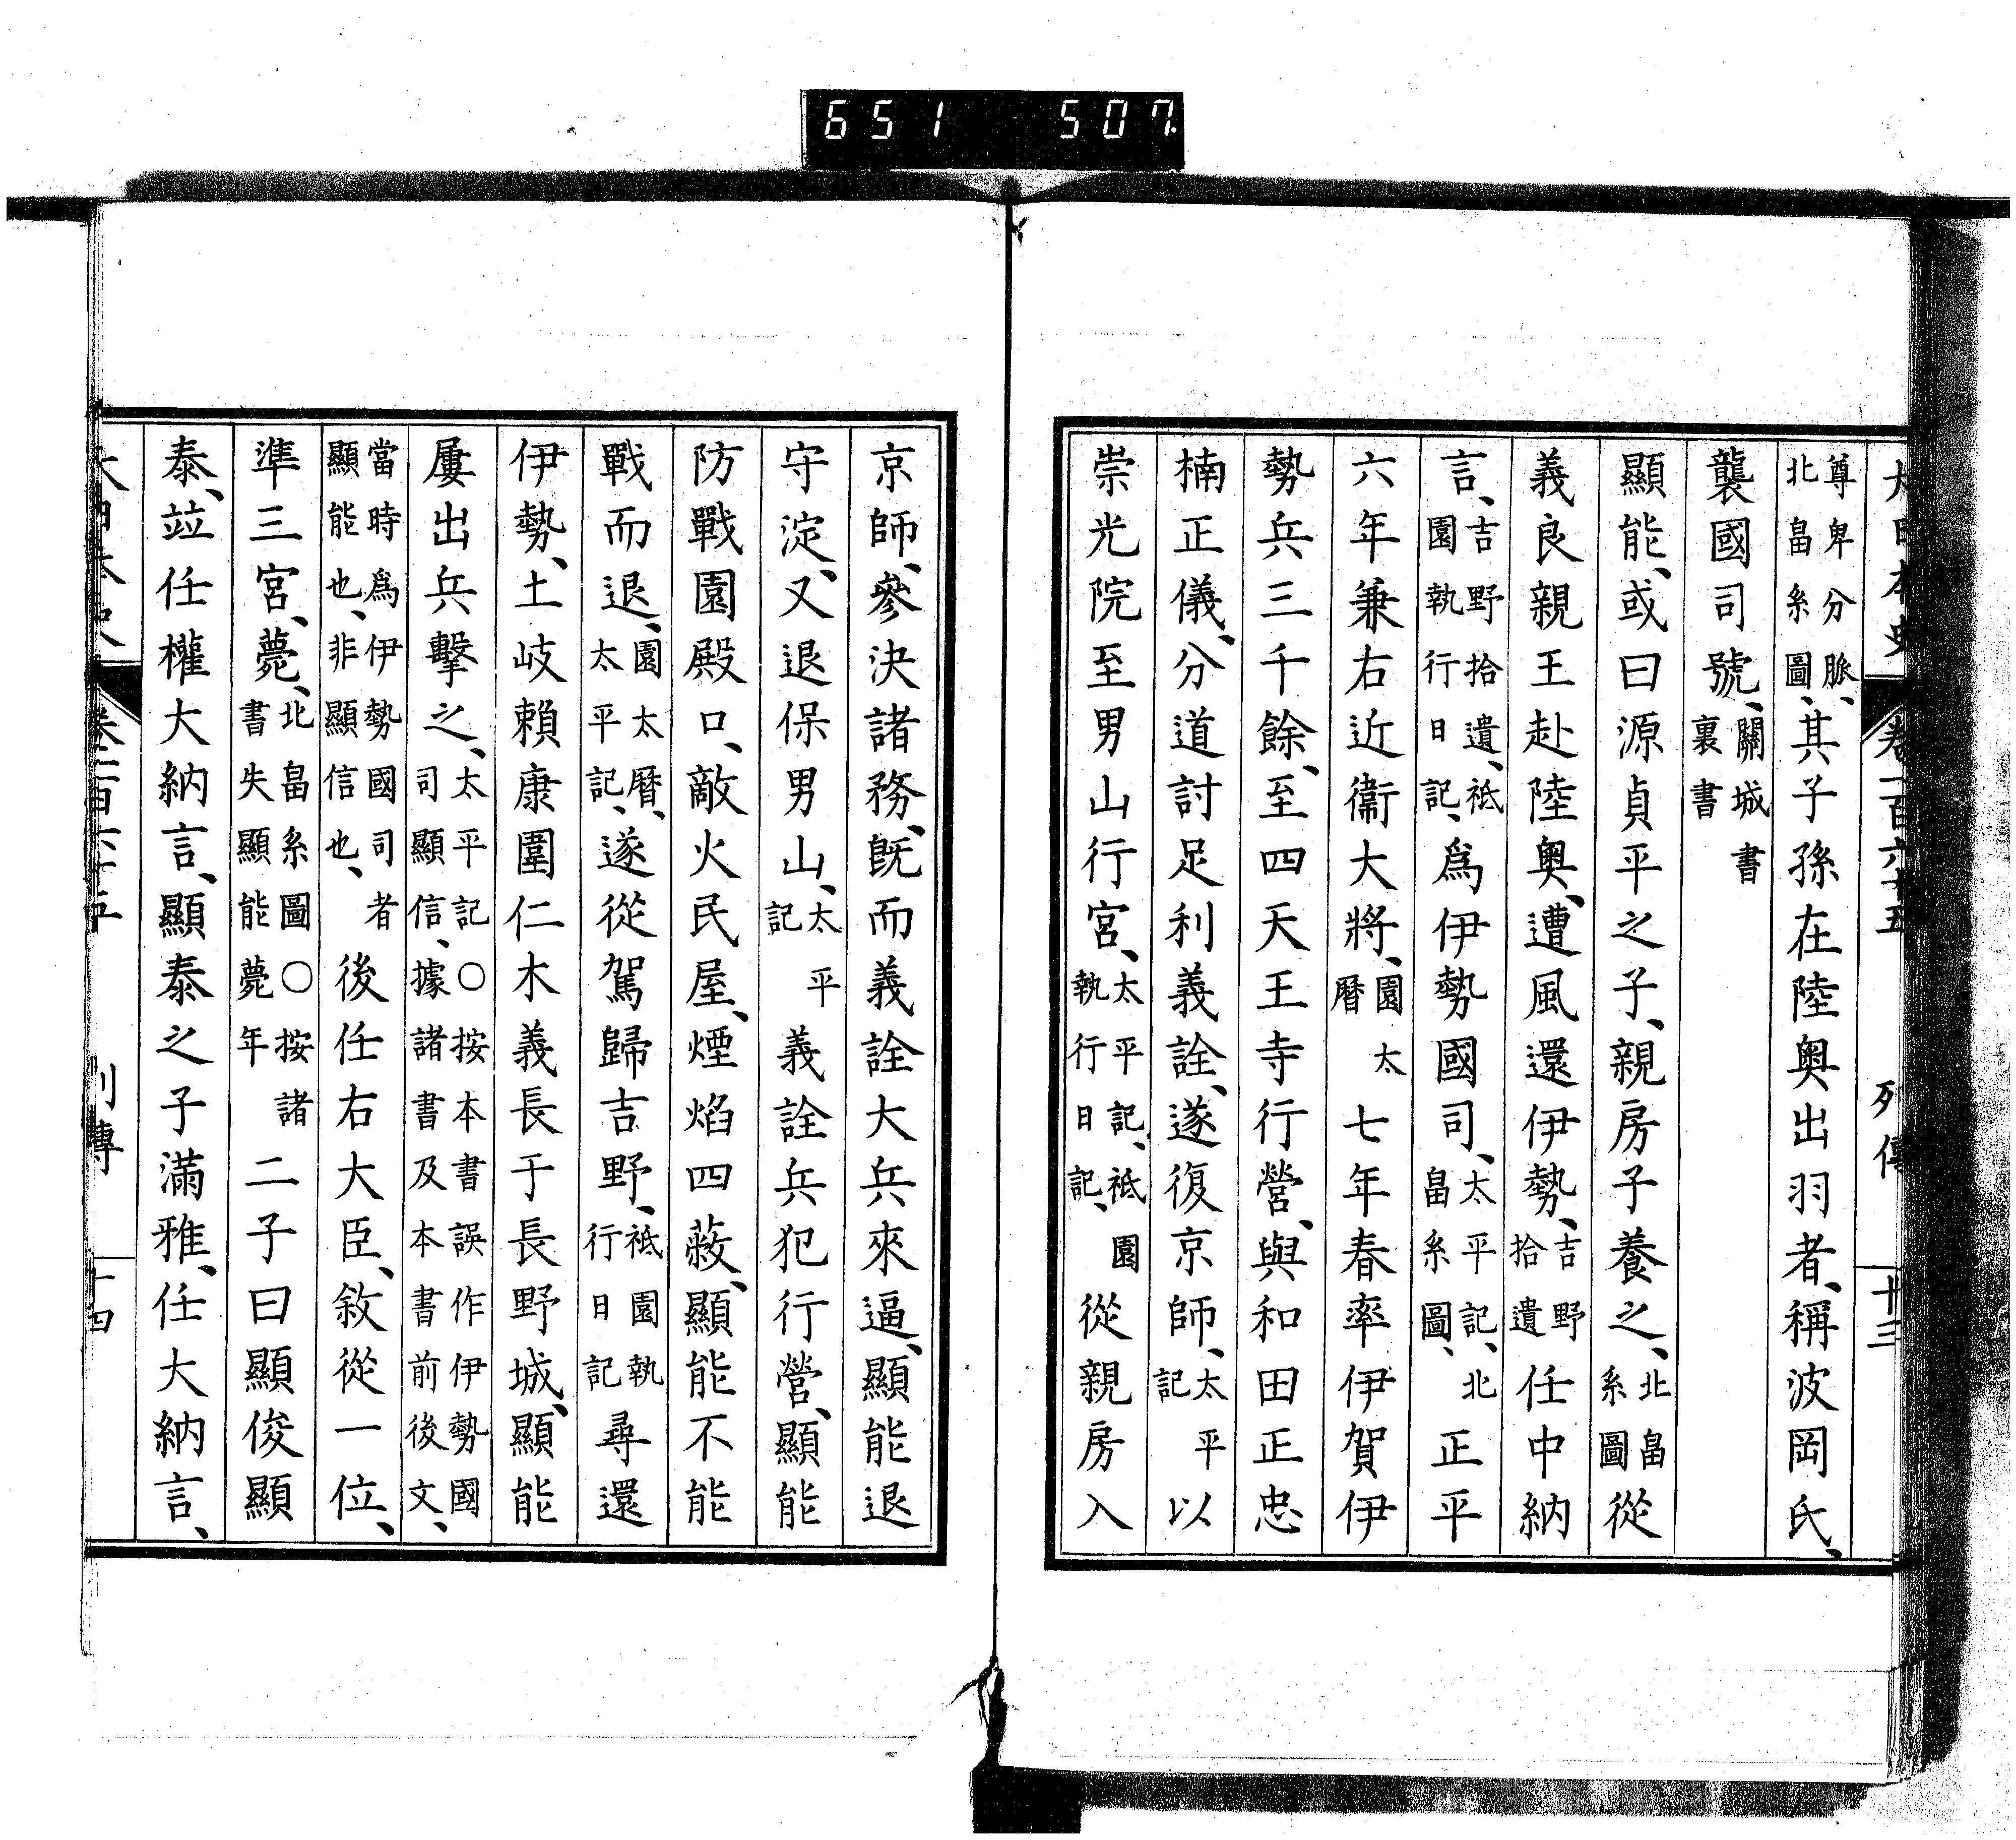 651 507
大日本史 卷一百六十五 列傳 十三
尊卑分脈、北畠系圖、其子孫在陸奧出羽者、稱波岡氏、
襲國司號、關城書裏書
顯能、或曰源貞平之子、親房子養之、北畠系圖從
義良親王赴陸奧、遭風還伊勢、吉野拾遺任中納
言、吉野拾遺、祗園執行日記、爲伊勢國司、太平記、北畠系圖、正平
六年兼右近衞大將、園太曆七年春率伊賀伊
勢兵三千餘、至四天王寺行營、與和田正忠
楠正儀、分道討足利義詮、遂復京師、太平記以
崇光院至男山行宮、太平記、祗園執行日記、從親房入
京師、參決諸務、旣而義詮大兵來逼、顯能退
守淀、又退保男山、太平記義詮兵犯行營、顯能
防戰園殿口、敵火民屋、煙焰四蔽、顯能不能
戰而退、園太曆、太平記、遂從駕歸吉野、祗園執行日記尋還
伊勢、土岐賴康圍仁木義長于長野城、顯能
屢出兵擊之、太平記○按本書誤作伊勢國司顯信、據諸書及本書前後文、
當時爲伊勢國司者顯能也、非顯信也、後任右大臣、敘從一位、
準三宮、薨、北畠系圖○按諸書失顯能薨年二子曰顯俊顯
泰、竝任權大納言、顯泰之子滿雅、任大納言、
大日本史 卷一百六十五 列傳 十四